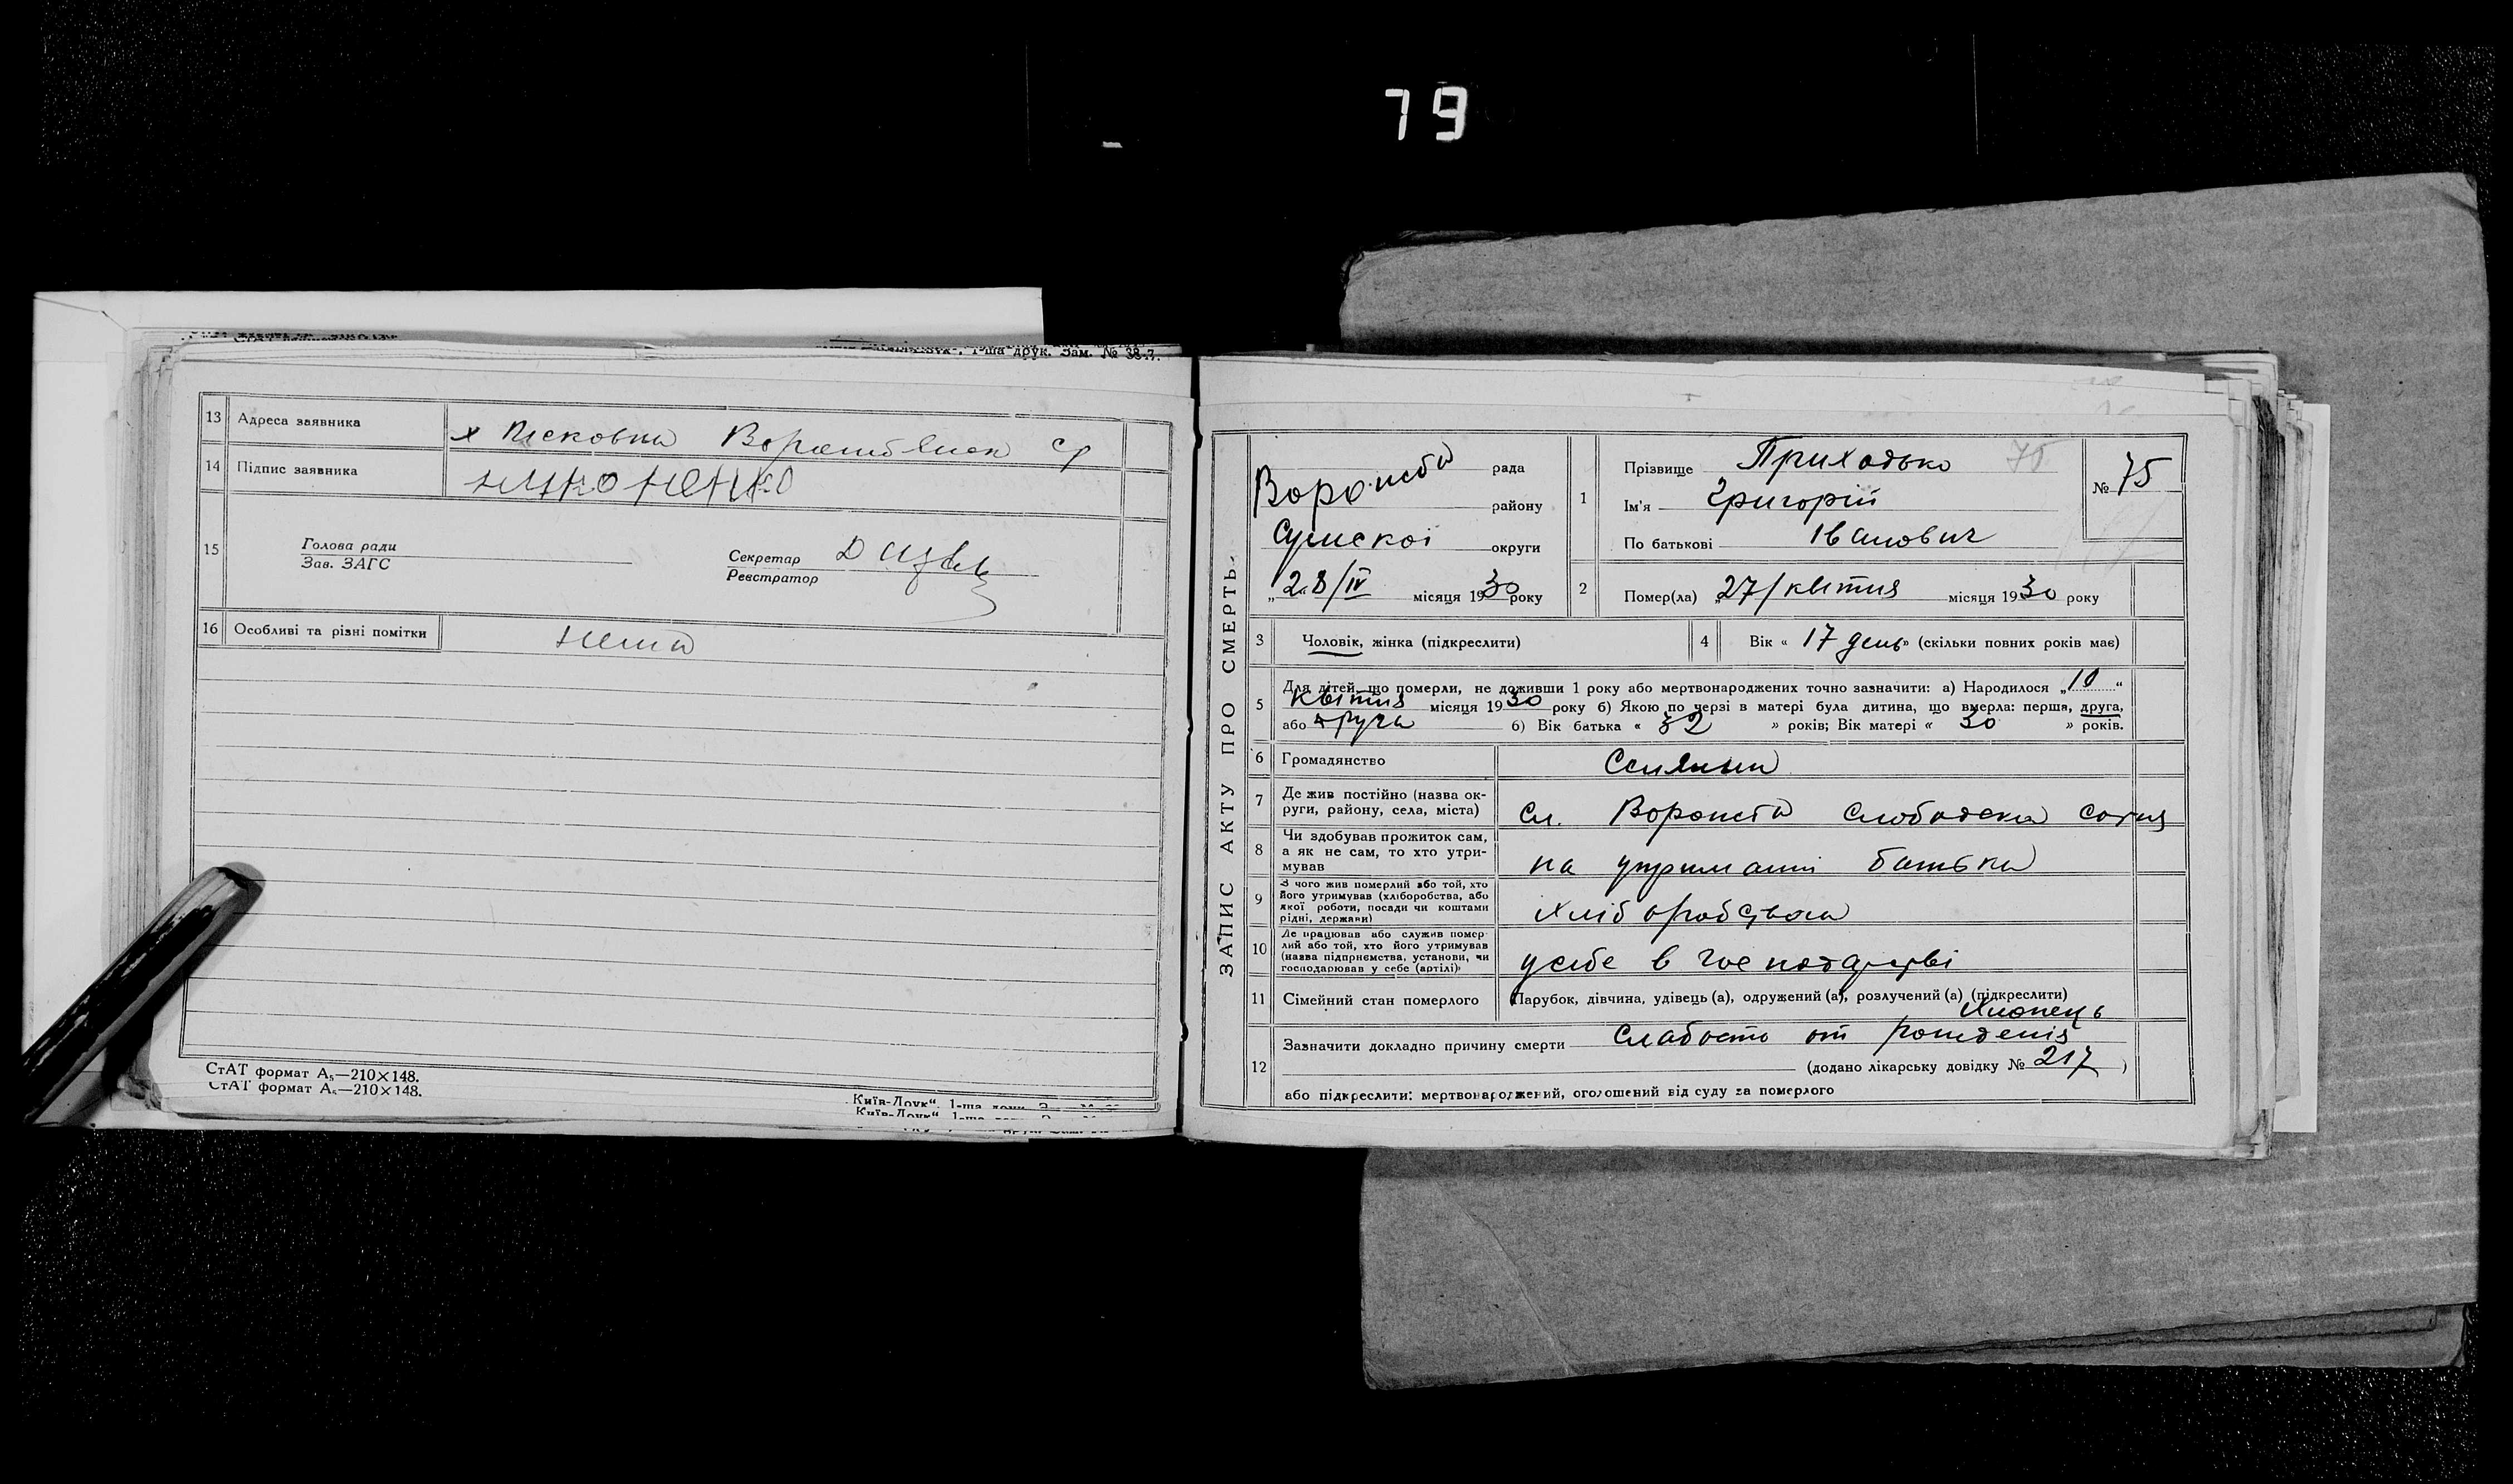 79
13 Адреса заявника х Пісковка
14 Підпис заявника
15 Голова ради
Зав. ЗАГС
Секретар
Реєстратор
16 Особливі та різні помітки нема
СтАТ формат А₅—210×148.
СтАТ формат А₅—210×148.
Київ-Друк", 1-ша друк.
1-ша друк. Зам. № 38.7.
ЗАПИС АКТУ ПРО СМЕРТЬ
Воронеба рада
району
Сумскої округи
„28/IV місяця 1930 року
1 Прізвище Приходько 75
Ім'я Григорій
По батькові Іванович
№ 75
2 Помер(ла) „27/квітня місяця 1930 року
3 Чоловік, жінка (підкреслити)
4 Вік « 17 день» (скільки повних років має)
5 Для дітей, що померли, не доживши 1 року або мертвонароджених точно зазначити: а) Народилося „10“
квітня місяця 1930 року б) Якою по черзі в матері була дитина, що вмерла: перша, друга,
або друга б) Вік батька « 32 » років; Вік матері « 30 » років.
6 Громадянство Селянин
7 Де жив постійно (назва ок-
руги, району, села, міста) сл. Воронеба Слободска сотня
8 Чи здобував прожиток сам,
а як не сам, то хто утри-
мував на утриманні батька
9 З чого жив померлий або той, хто
його утримував (хліборобства, або
якої роботи, посади чи коштами
рідні, держави) Хліборобством
10 Де працював або служив помер
лий або той, хто його утримував
(назва підприємства, установи, чи
господарював у себе (артілі)) усебе в господарстві
11 Сімейний стан померлого Парубок, дівчина, удівець (а), одружений (а), розлучений (а) (підкреслити)
Хлопець
12 Зазначити докладно причину смерти Слабость от рождения
(додано лікарську довідку № 217 )
або підкреслити: мертвонароджений, оголошений від суду за померлого